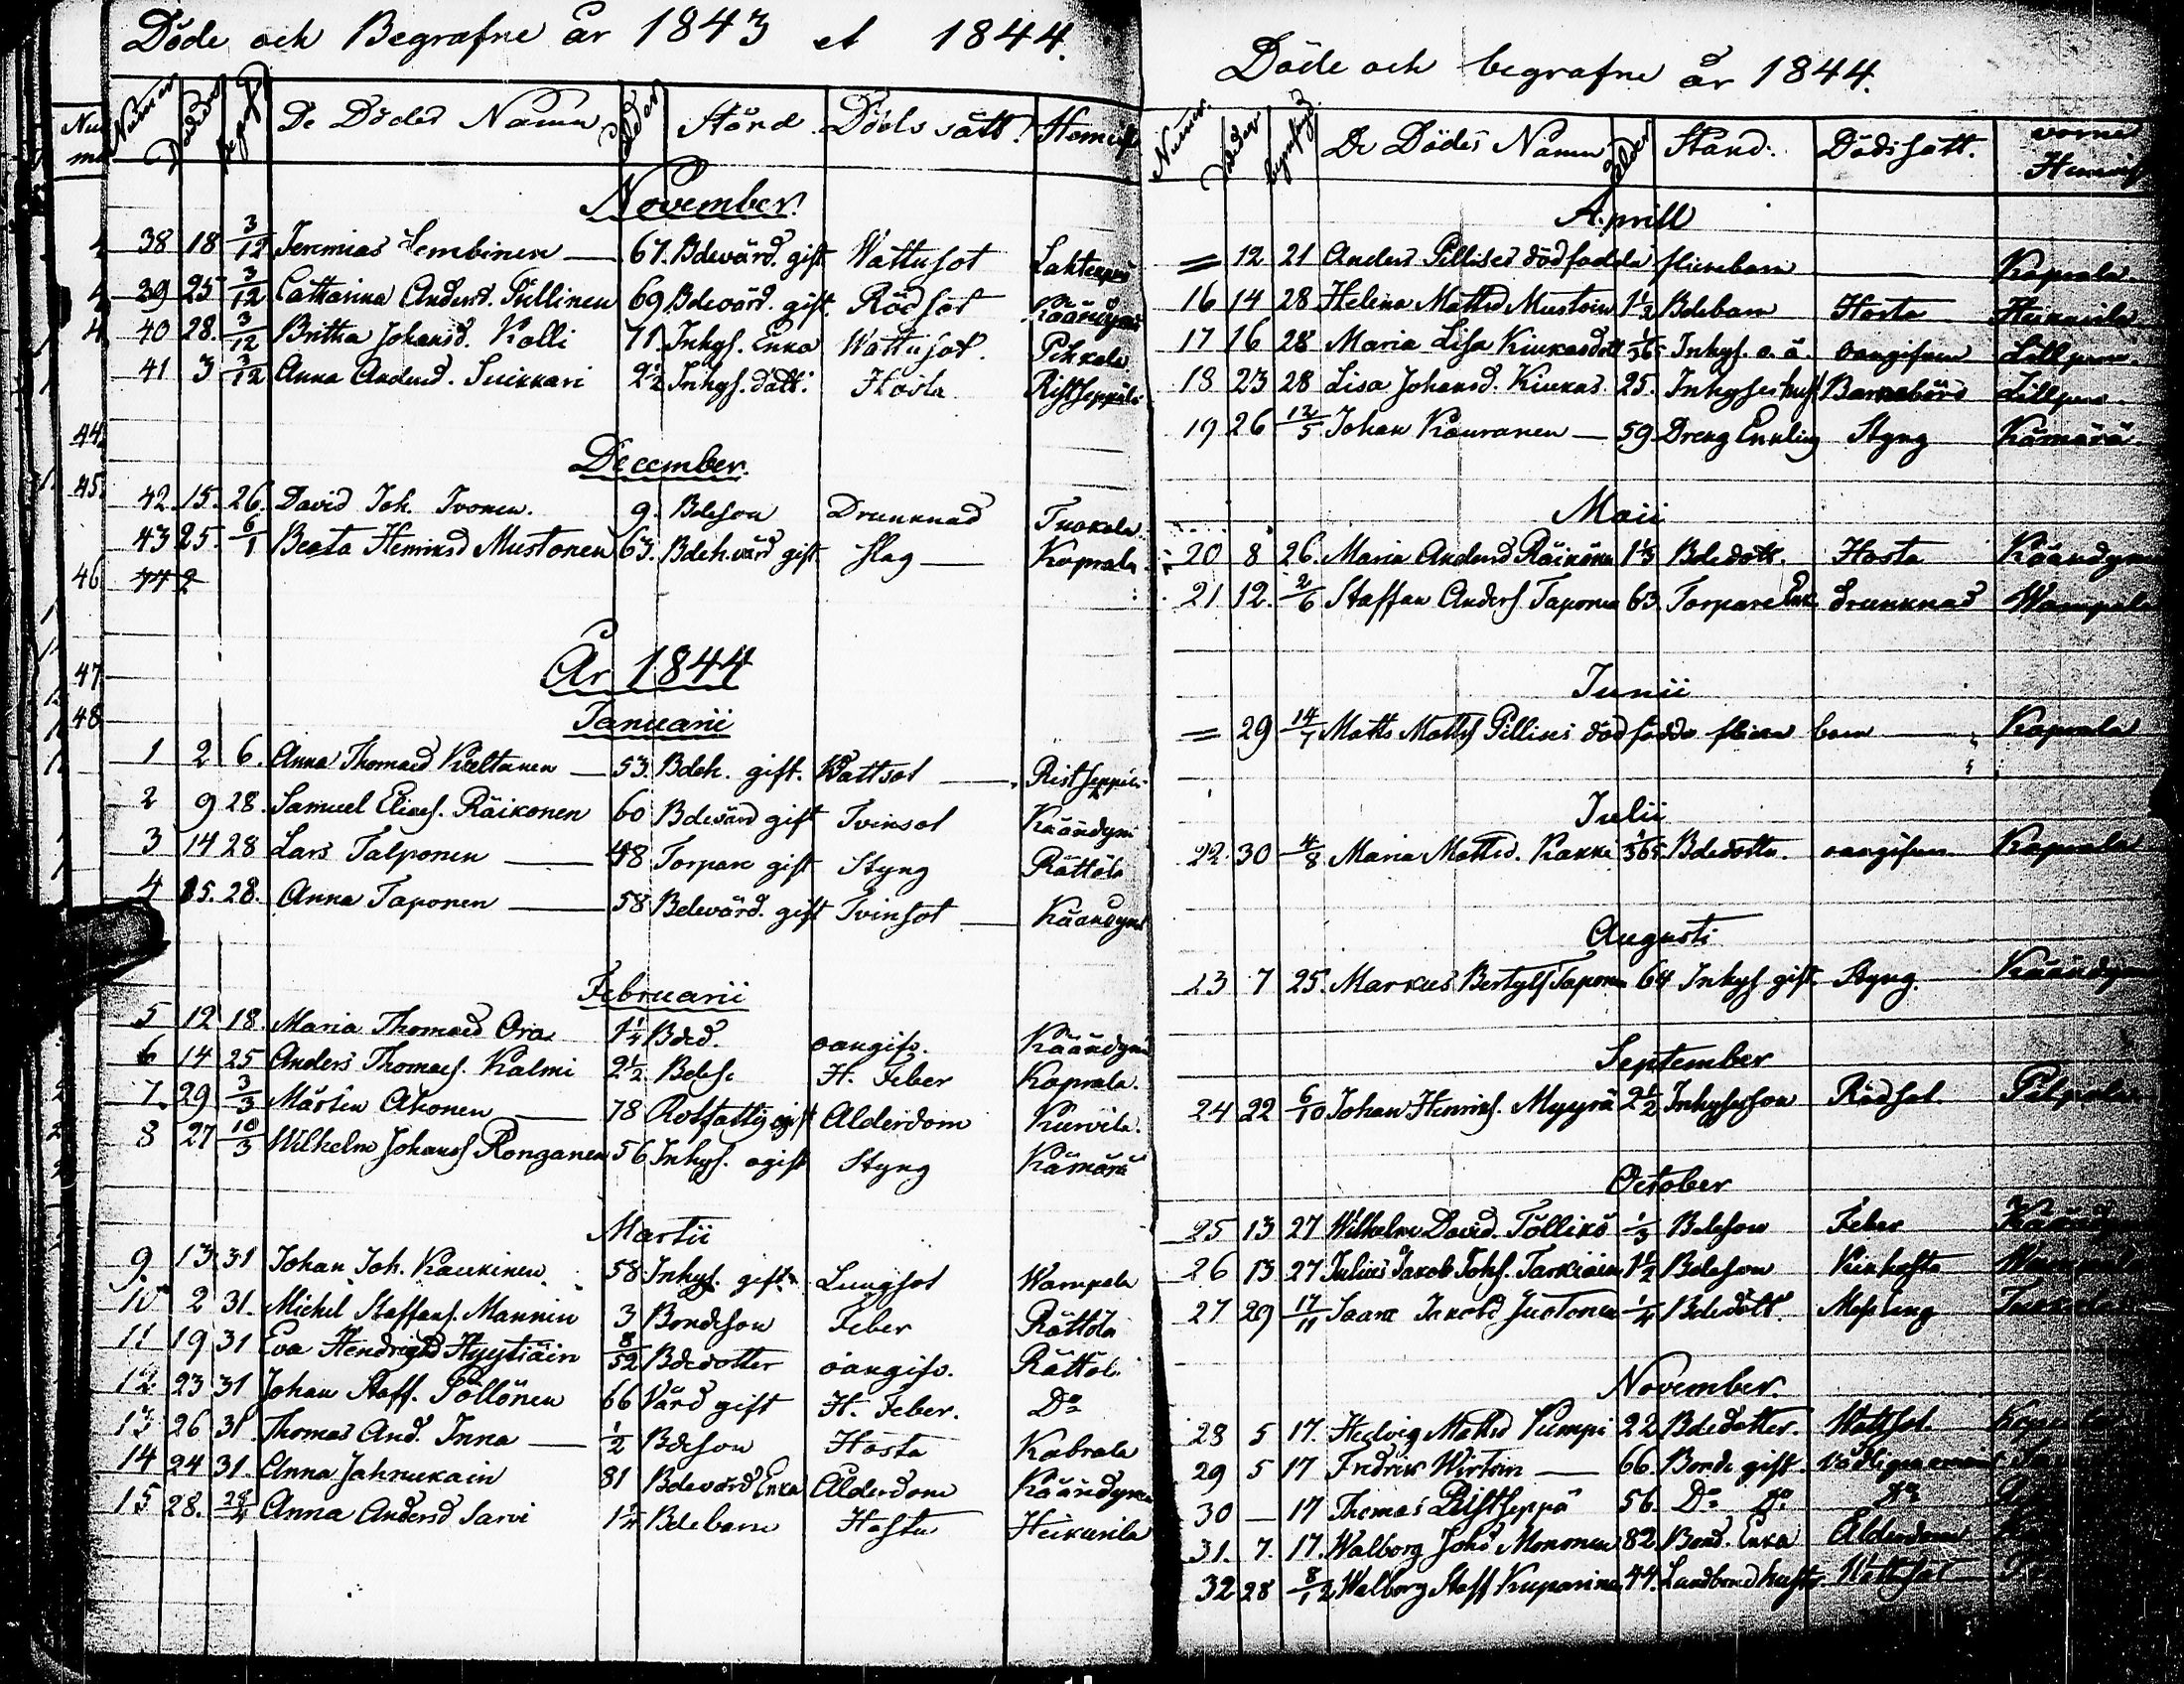 Döde och Begrafne år 1843 et 1844.
Numer Dödedag begrafd De Dödes Namn ålder Stånd Dödssätt. Hemvist
November.
38 18 3/12 Jeremias Sembinen — 67. Bdevärd. gift Wattusot
39 25 3/12 Catharina Andersd. Tullinen 69 Bdevärd. gift. Rödsot Käändymä
40 28. 3/12 Britha Johansd. Kolli 71. Inhys. Enka Wattusot. Pihkala
41 3 3/12 Anna Andersd. Suikkari 2½ Inhys. dott. Hosta Ristseppälä
44
December.
45
42. 15. 26. David Joh. Ivonen. 9. Bdeson Drunknad Tuokola
43 25. 6/1 Beata Henriksd Mustonen 63. Bdeh.värd gift. slag — Koprala
46 44 2
År 1844
47
48
Januarii
1 2 6. Anna Thomasd Kieltanen — 53. Bdeh. gift. Wattsot — Ristseppälä
2 9 28. Samuel Eliass. Räikonen 60 Bdevärd gift Tvinsot Käändymä
3 14 28 Lars Talponen — 48 Torpare gift Styng Rättölä
4 15. 28. Anna Taponen — 58 Bdevärd. gift Tvinsot — Käändymä
Februarii
5 12 18. Maria Thomasd Ora 1¼ Bded. oangifv. Käändymä
6 14 25 Anders Thomass. Kalmi 2½ Bdes. H. Feber Koprala.
7. 29 3/3 Mårten Ahonen — 78 Rotfattig gift Alderdom Kurvila.
8 27 10/3 Wilhelm Johanss Ronganen 56 Inhys. ogift Styng Kämärä
Martii
9. 13 31 Johan Joh. Kaukinen 58 Inhys. gift. Lungsot Wampala
10 2 31. Michel Staffans. Mannin 3 Bondeson Feber Rättölä
11 19 31 Eva Hendrigsd Hyytiäin 8/52 Bdedotter oangifv. Rättöl.
12. 23 31 Johan Staff. Pöllönen 66 Värd gift H. Feber. Do
13 26 31. Thomas And. Inna — ½ Bdeson Hosta Kabrala
14 24 31. Anna Jahnukain 81 Bdevärd Enka Alderdom Käändymä
15 28. 28/4 Anna Andersd Sarvi 1¼ Bdebarn Hosta Heikurila
Döde och begrafne år 1844.
Numer. Dödedag begrafd De Dödes Namn ålder Stånd. Dödssätt. Hemvist
Aprill
= 12 21 Anders Pillises dödfödda flickebarn — Koprala.
16 14 28 Helena Mattsd Mustoin 1½ Bdebarn Hosta Heikurila
17 16 28 Maria Lisa Kiukasdott Inhys. o. ä. oangifven Lillpero.
18 23 28 Lisa Johansd. Kiukas. 25. Inhyses hust Barnsbörd Lillpero
19 26 12/5 Johan Kauranen — 59 Dreng Enkling Styng Kämärä
Maii
20 8 26. Maria Andersd Räikönen 1⅓ Bdedott. Hosta Käändymä
21. 12. 2/6 Staffan Anders Taponen 63 Torpare Enk. drunknad Wampala
Junii
= 29 14/7 Matts Matts Pillises dödfödda flicke barn — Koprala
Julii
22. 30 4/8 Maria Mattsd. Kakki Bdedotter. oangifven Koprala
Augusti
23 7 25. Markus Bertyls Taponen 64 Inhys gift. Styng. Käändymä
September
24 22 6/10 Johan Henriks. Myyrä 2½ Inhysesson Rödsot
October
25 13 27 Wilhelm David. Tölliko ⅓ Bdeson Feber
26 13 27 Julius Jakob Johs. Tarkiain 1½ Bdeson Kikhosta
27 29 17/11 Saara Jakobsd Justonen ¼ Bdedott. Messling
November.
28 5 17. Hedvig Mattsd Pumpi 22 Bdedotter. Wattsot.
29 5 17 Fredrik Wirtoin — 66. Bonde gift.
30 — 17 Thomas Ristseppä 56. Do Do Do
31. 7. 17. Walborg Johsd Mononen 82 Bond. Enka Alderdom
32 28 8/12 Walborg Staff Kuparinen 44. Landbond hustr Wattsot